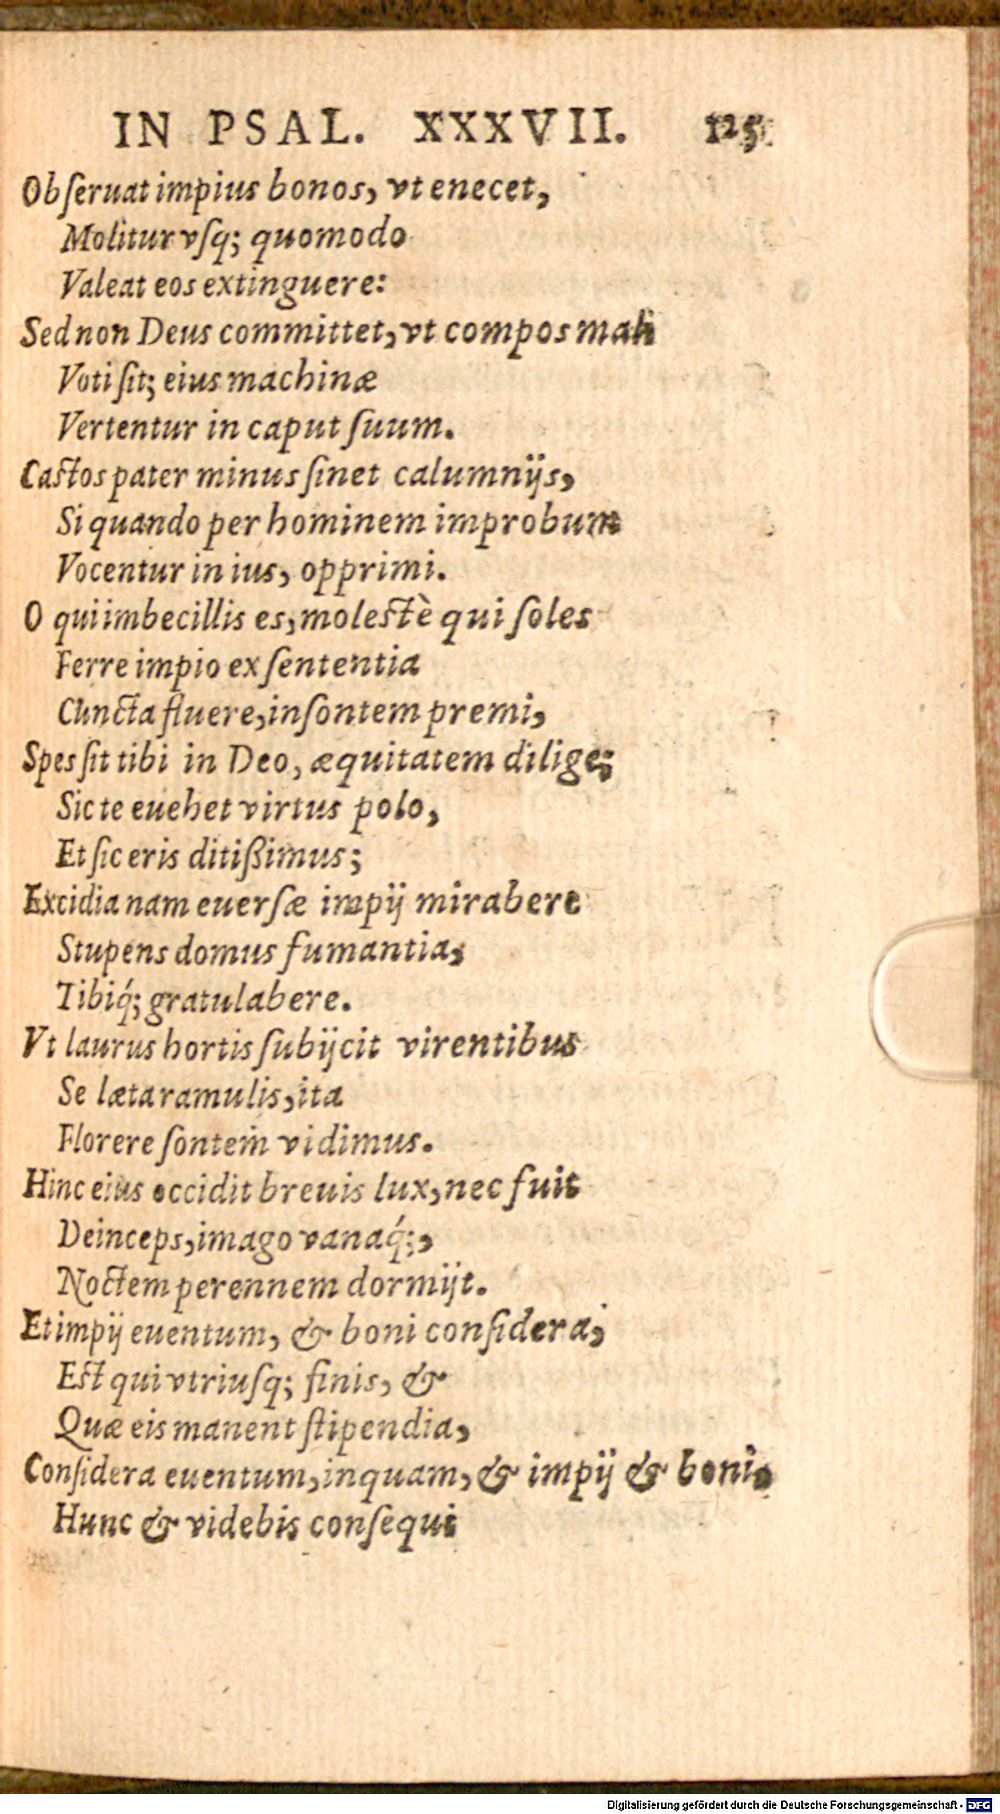 IN PSAL. XXXVII. 125
Obseruat impius bonos, vt enecet,
Molitur vsq; quomodo
Valeat eos extinguere:
Sed non Deus committet, vt compos mali
Voti sit; eius machinæ
Vertentur in caput suum.
Castos pater minus sinet calumnijs,
Si quando per hominem improbum
Vocentur in ius, opprimi.
O qui imbecillis es, molestè qui soles
Ferre impio ex sententia
Cuncta fluere, insontem premi,
Spes sit tibi in Deo, æquitatem dilige;
Sic te euehet virtus polo,
Et sic eris ditißimus;
Excidia nam euersæ impij mirabere
Stupens domus fumantia,
Tibiq́; gratulabere.
Vt laurus hortis subijcit virentibus
Se læta ramulis, ita
Florere sontem vidimus.
Hinc eius occidit breuis lux, nec fuit
Deinceps, imago vanaq́;,
Noctem perennem dormijt.
Et impij euentum, & boni considera,
Est qui vtriusq; finis, &
Quæ eis manent stipendia,
Considera euentum, inquam, & impij & boni,
Hunc & videbis consequi
Digitalisierung gefördert durch die Deutsche Forschungsgemeinschaft - DFG